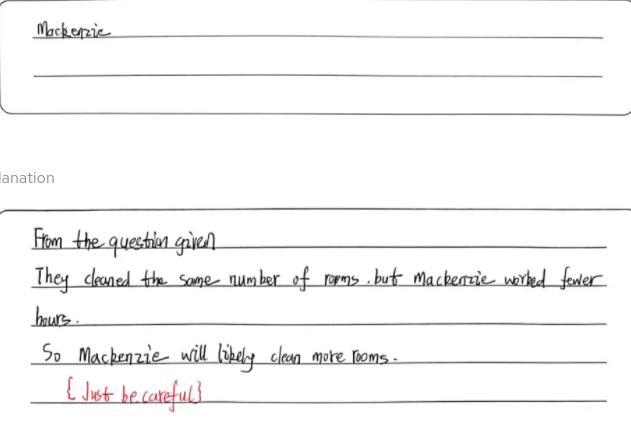 Mackenzie
lanation
From the question given
They cleaned the same number of rooms, but Mackenzie worked fewer
hours.
So Mackenzie will likely clean more rooms.
{ Just be careful}